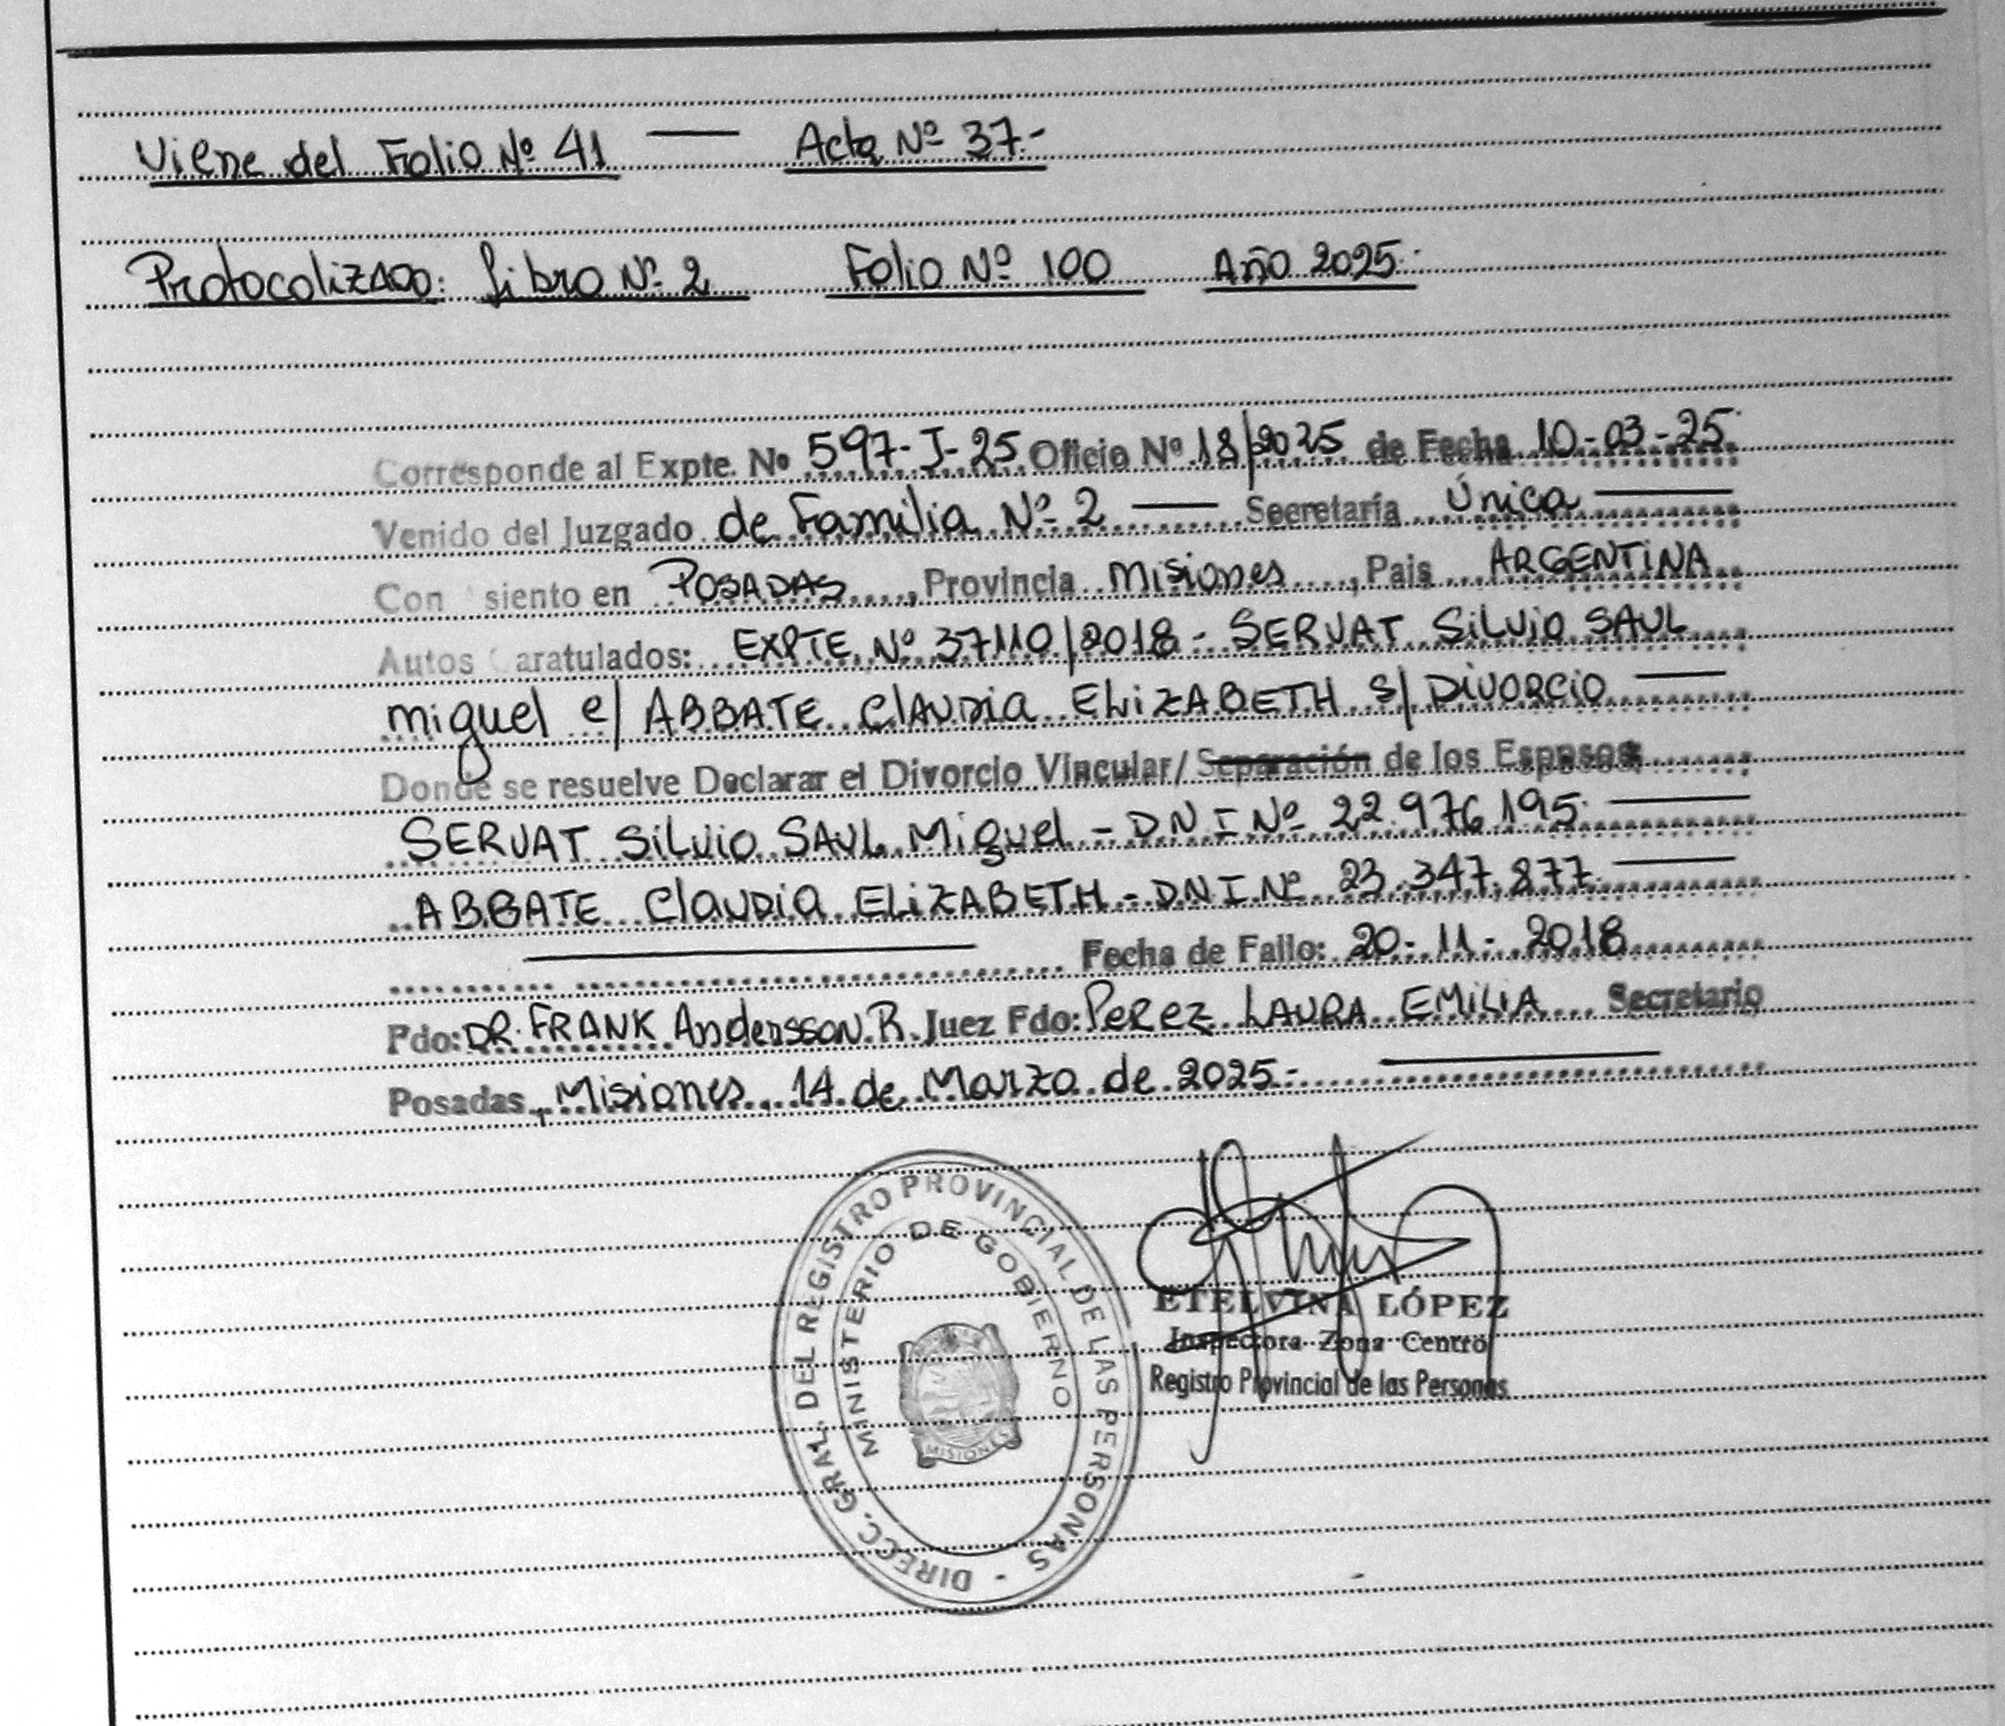 Viene del Folio Nº 41 — Acta Nº 37.-
Protocolizado: Libro Nº 2 Folio Nº 100 Año 2025.-
Corresponde al Expte. Nº 597-J-25 Oficio Nº 18/2025 de Fecha 10-03-25.
Venido del Juzgado de Familia Nº 2 — Secretaría Única —
Con siento en POSADAS, Provincia Misiones, Pais ARGENTINA
Autos Caratulados: EXPTE Nº 37110/2018 - SERVAT SiLViO SAUL
Miguel c/ ABBATE ClAUDiA ELiZABETH s/ DiVORCiO —
Donde se resuelve Declarar el Divorcio Vincular/ Separación de los Esposos:
SERVAT SiLViO SAUL Miguel - DNI Nº 22.976.195. —
ABBATE ClAUDiA ELiZABETH - DNI Nº 23.347.877. —
— Fecha de Fallo: 20-11-2018
Fdo: DR. FRANK Andersson.R. Juez Fdo: PEREZ LAURA EMiLiA Secretario
Posadas, Misiones, 14 de Marzo de 2025.- —
DIRECC. GRAL. DEL REGISTRO PROVINCIAL DE LAS PERSONAS -
MINISTERIO DE GOBIERNO
MISIONES
ETELVINA LÓPEZ
Inspectora Zona Centro
Registro Provincial de las Personas